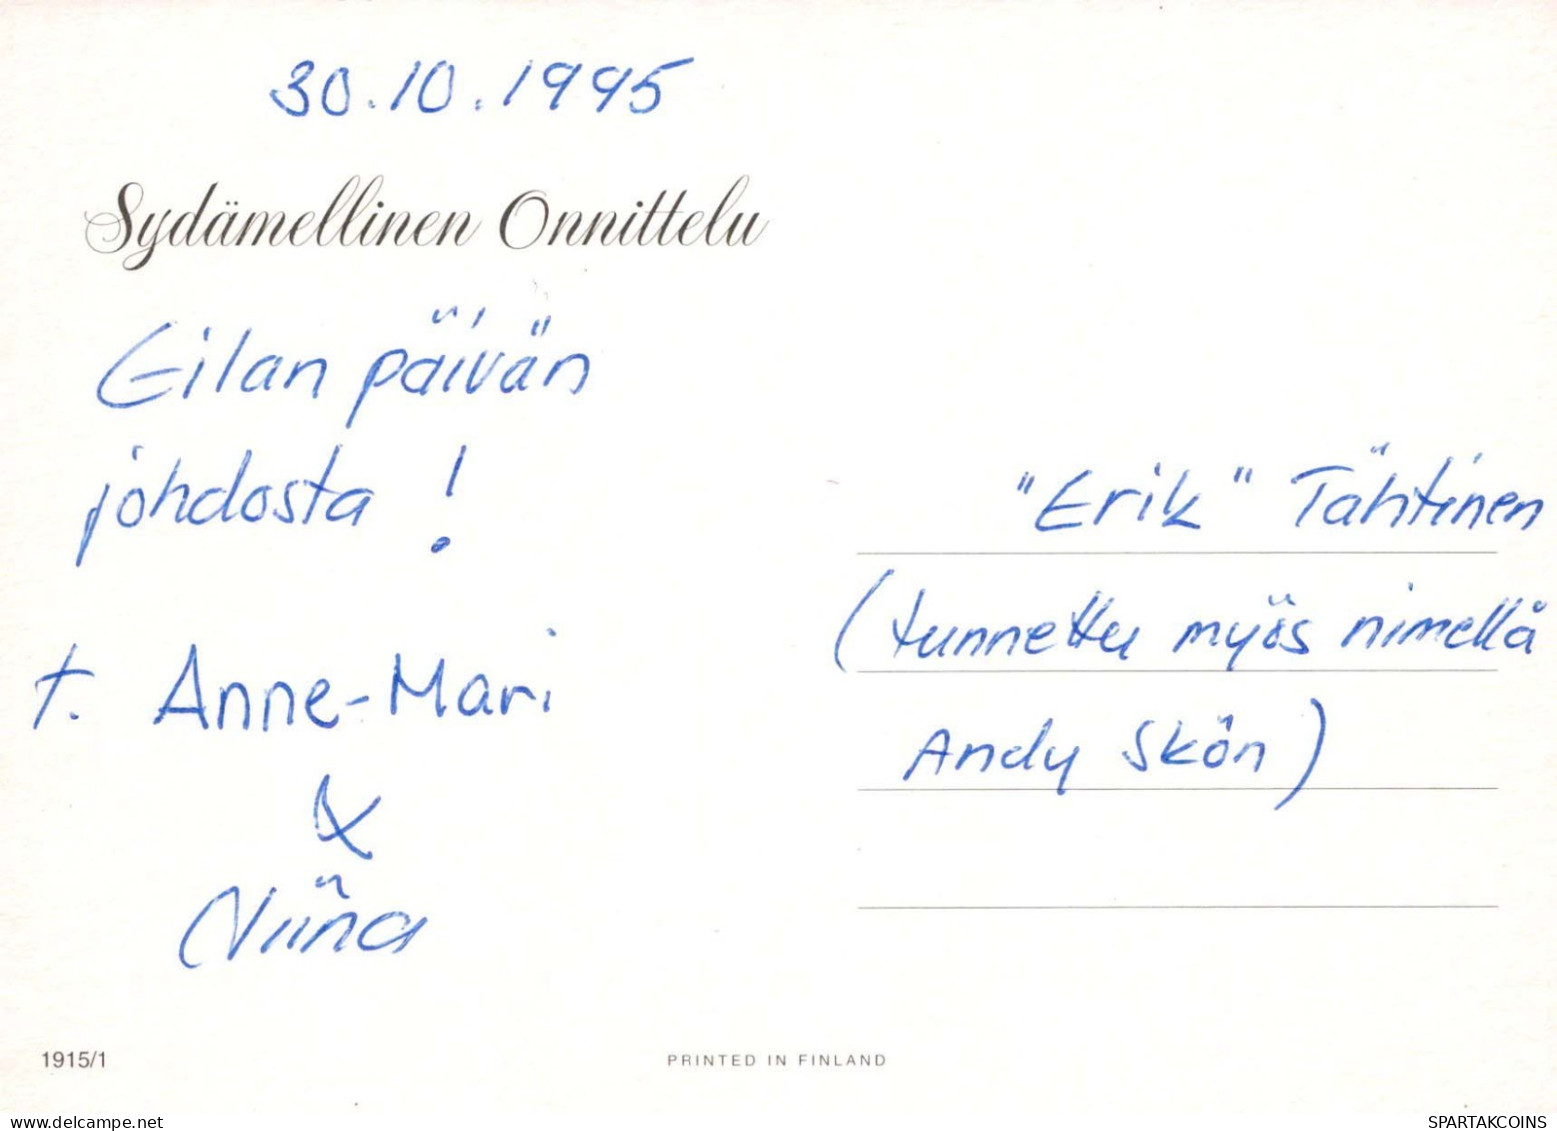 30.10.1995
Sydämellinen Onnittelu
Eilan päivän
johdosta !
t. Anne-Mari
&
Niina
"Erik" Tähtinen
(tunnettu myös nimellä
Andy Skön)
1915/1
PRINTED IN FINLAND
SPARTAKCOINS